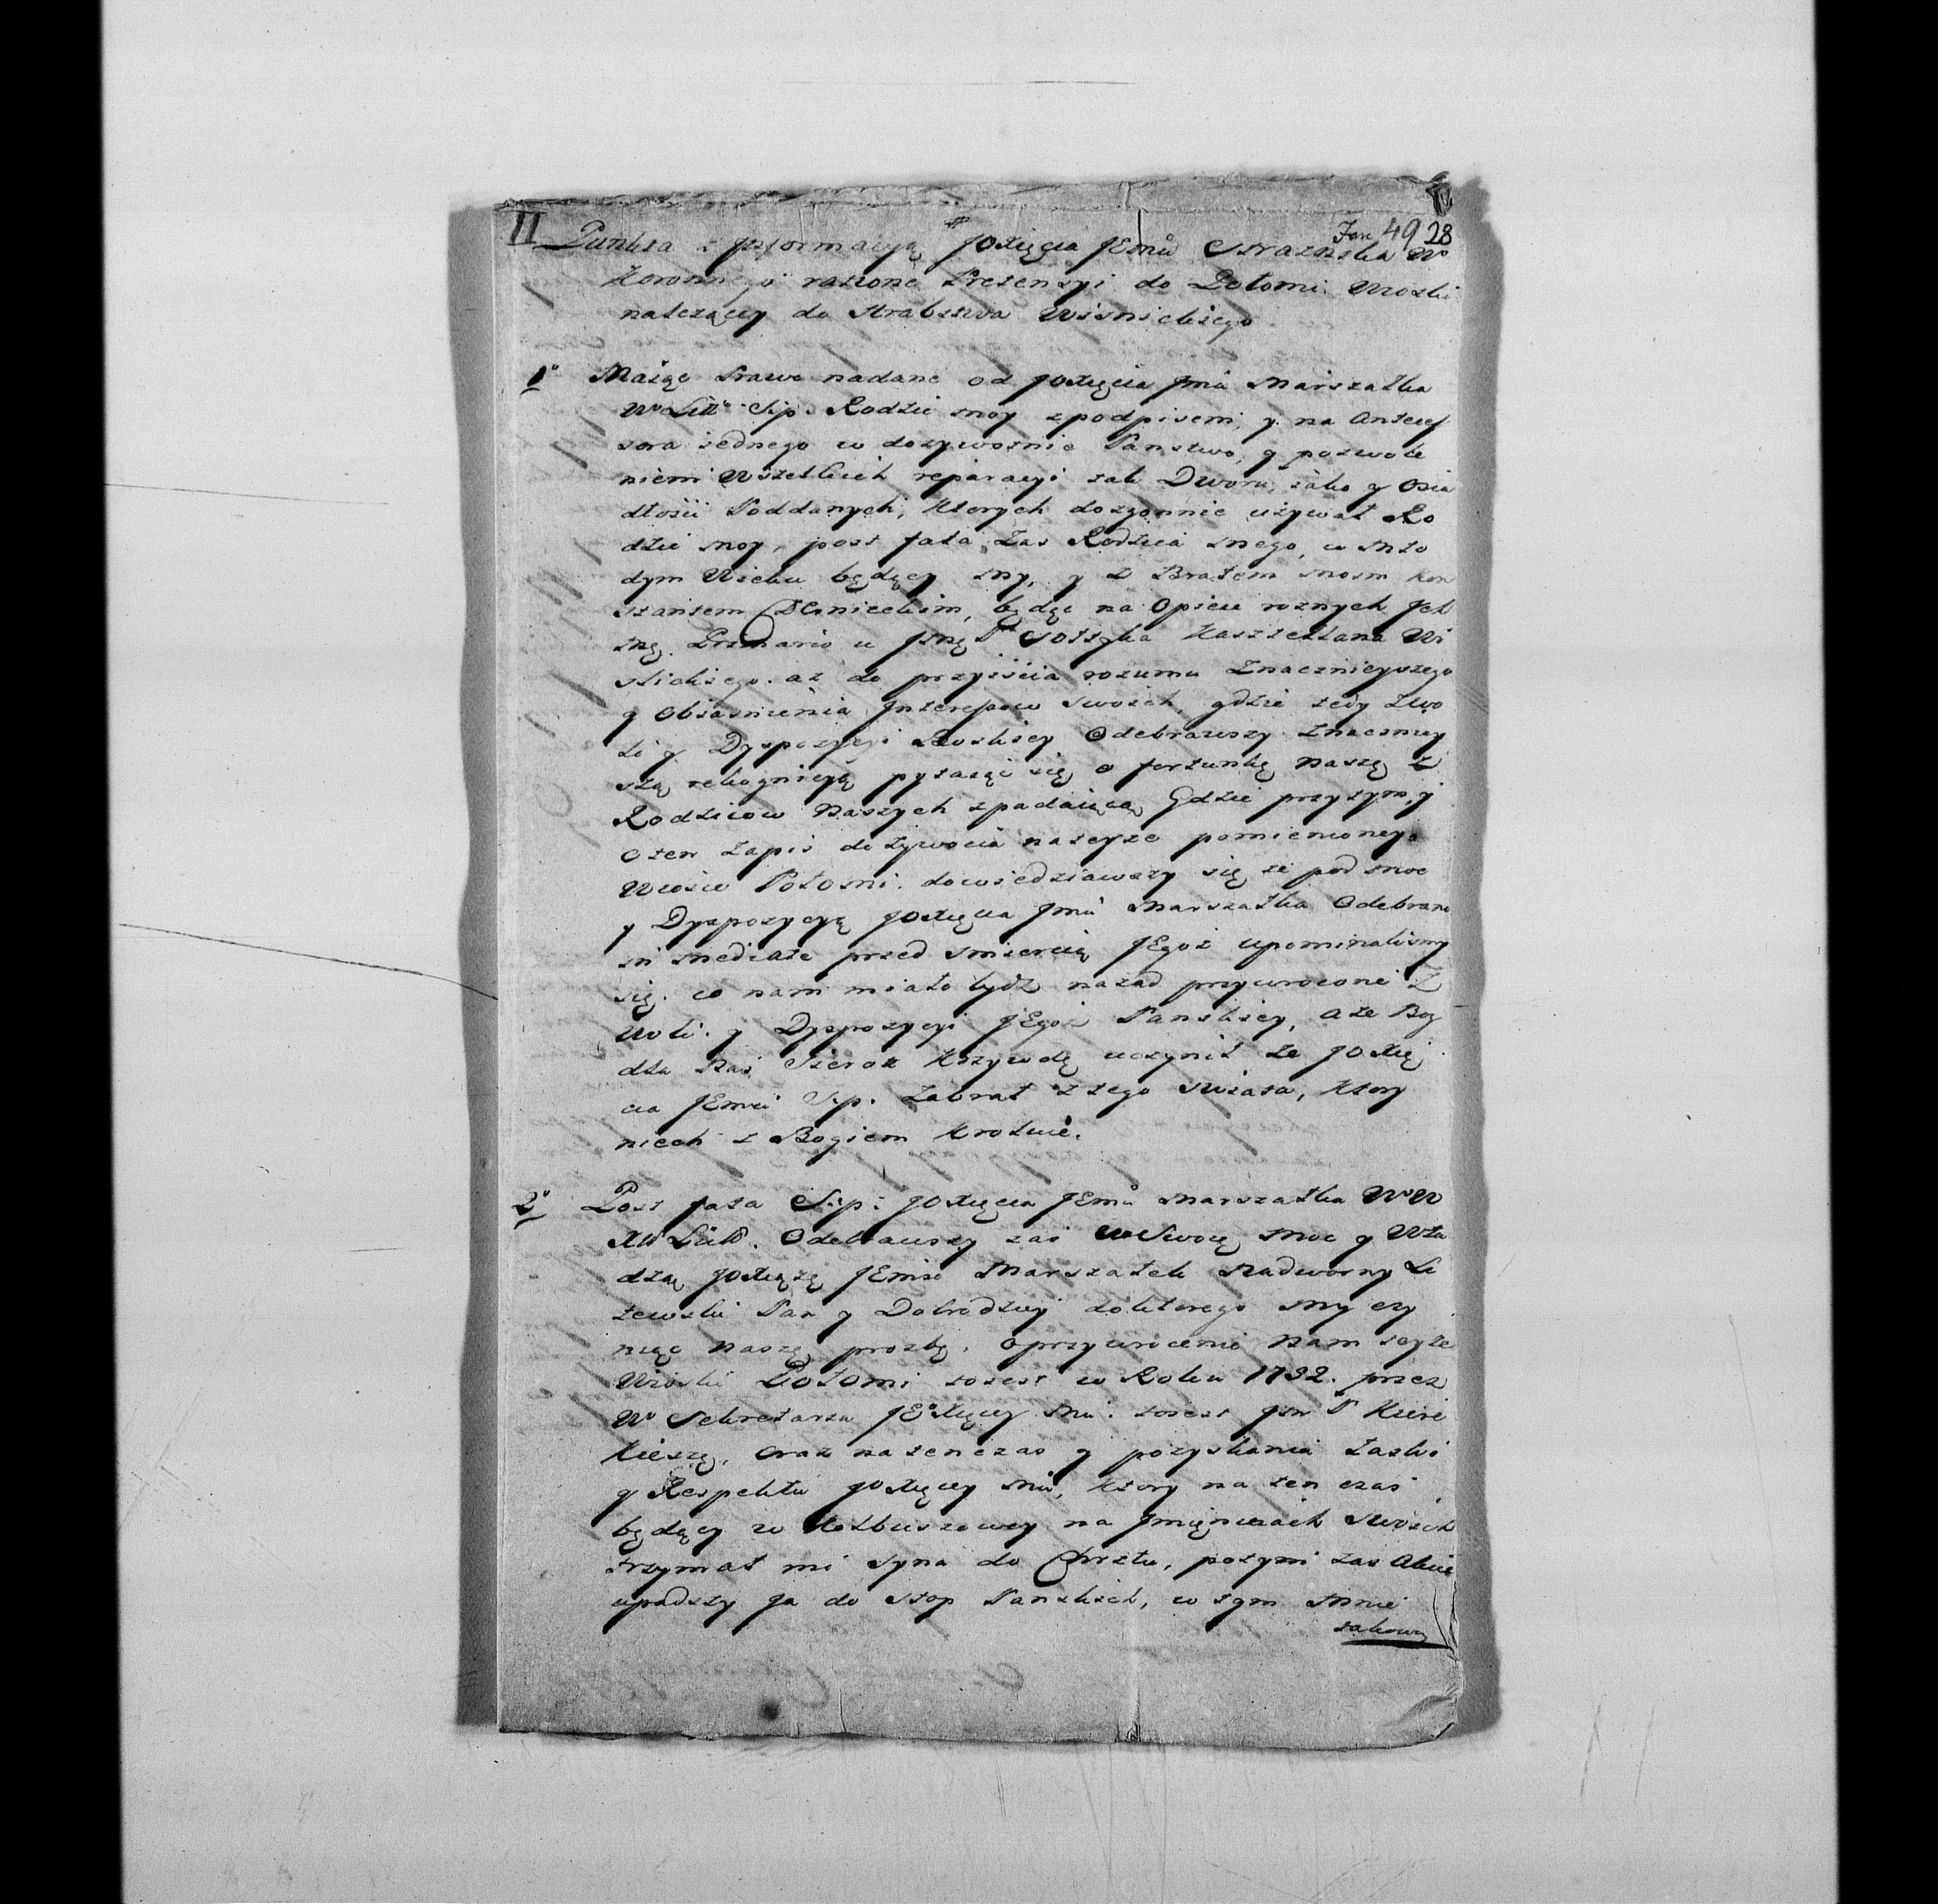 II
Jan 49 28
Punkta z Jnformacyą JOXięcia JEmci Strażnika Wo
Koronnego ratione Pretensyi do Połomi Wioski
należącey do Hrabstwa Wisnickiego
1o Maiąc Prawo nadane od JOXięcia Jmci Marszałka
Wo Litto S.p. Rodzic moy z podpisem, y na Anteces
sora iednego w dozywotnie Panstwo, y pozwole
niem Wszelkich reparacyi tak Dworu, iako y Osia
dłosci Poddanych, ktorych dozgonnie uzywał Ro
dzic moy, post fata zas Rodzica mego, w mło
dym Wieku będący my, y z Bratem moim Kon
stantem będąc na Opiece roznych Jch
mę. Primario u Jmę Pa Sołtyka Kasztellana Wi
slickiego. az do przyiścia rozumu Znacznieyszego
y Obiasnienia Jnteressow swoich, gdzie tedy z wo
li y Dyspozycyi Boskiey Odebrawszy Znaczniey
szą rekognicyą pytaiąc się o fortunkę naszę z
Rodzicow Naszych spadaiącą Gdzie przytym y
O ten Zapis dozywocia na teyze pomienioney
Wiosce Połomi. dowiedziawszy się ze pod moc
y Dyspozycyą JOXięcia Jmci Marszałka Odebrana
in mediate przed smiercią JEgoż upominalismy
się. co nam miało bydz nazad przywrocone Z
woli y Dyspozycyi JEgoż Panskiey, a ze Bog
dla Nas Sierot Krzywdę uczynił ze JOXię
cia JEmci S.p. Zabrał z tego Swiata, ktory
niech z Bogiem Kroluie.
2o Post fata S.p. JOXięcia JEmci Marszałka WoW
XW Litto. Odebrawszy zas w Swoię moc y Wła
dzą JOXiążę JEmsc Marszałek Nadworny Li
tewski Pan y Dobrodziey do ktorego my czy
niąc Naszę prozbę, o przywrocenie Nam teyze
Wioski Połomi toiest w Roku 1732. przez
Wo Sekretarza JEOXięcey Mci. toiest Jm P
oraz natenczas y pozyskania Łaski
y Respektu JOXięcey Mci, ktory na ten czas
będący w Kolbuszowey na Jmięninach Swoich
trzymał mi Syna do Chrztu, potym zas
upadszy Ja do Stop Panskich, w tym Mnie
takową